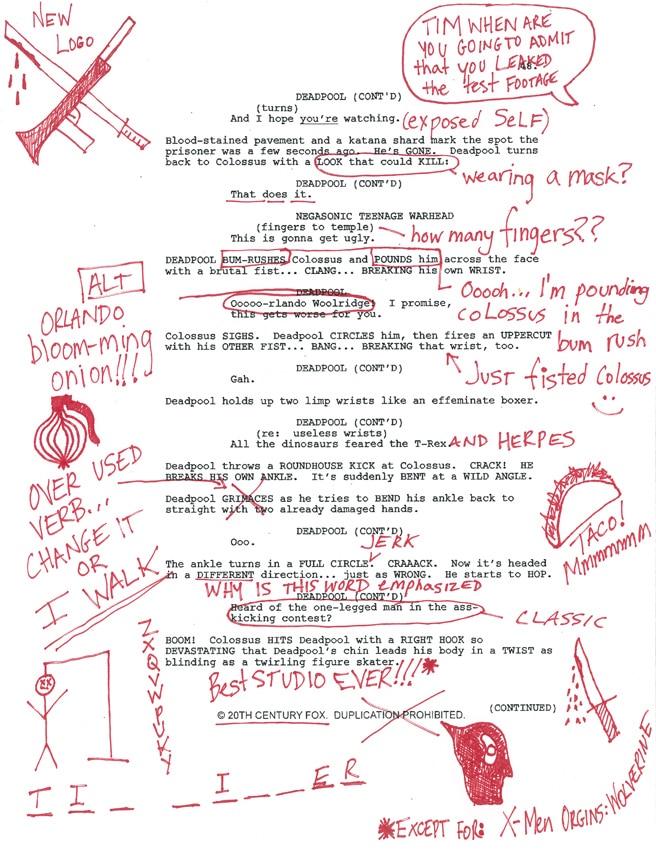 NEW
LOGO
TIM WHEN ARE
YOU GOING TO ADMIT
that YOU LEAKED
the test FOOTAGE
48.
DEADPOOL (CONT'D)
(turns)
And I hope you're watching.
(exposed SELF)
Blood-stained pavement and a katana shard mark the spot the
prisoner was a few seconds ago. He's GONE. Deadpool turns
back to Colossus with a LOOK that could KILL:
wearing a mask?
DEADPOOL (CONT'D)
That does it.
NEGASONIC TEENAGE WARHEAD
(fingers to temple)
This is gonna get ugly.
how many fingers??
DEADPOOL BUM-RUSHES Colossus and POUNDS him across the face
with a brutal fist... CLANG... BREAKING his own WRIST.
Ooooh... I'm pounding
COLOSSUS in the
bum rush
DEADPOOL
Ooooo-rlando Woolridge! I promise,
this gets worse for you.
ALT
ORLANDO
bloom-ming
onion!!!
Colossus SIGHS. Deadpool CIRCLES him, then fires an UPPERCUT
with his OTHER FIST... BANG... BREAKING that wrist, too.
JUST fisted Colossus
DEADPOOL (CONT'D)
Gah.
Deadpool holds up two limp wrists like an effeminate boxer.
DEADPOOL (CONT'D)
(re: useless wrists)
All the dinosaurs feared the T-Rex
AND HERPES
Deadpool throws a ROUNDHOUSE KICK at Colossus. CRACK! HE
BREAKS HIS OWN ANKLE. It's suddenly BENT at a WILD ANGLE.
OVER USED
VERB...
CHANGE IT
OR
I WALK
Deadpool GRIMACES as he tries to BEND his ankle back to
straight with two already damaged hands.
TACO!
Mmmmmmm
DEADPOOL (CONT'D)
Ooo.
JERK
The ankle turns in a FULL CIRCLE. CRAAACK. Now it's headed
in a DIFFERENT direction... just as WRONG. He starts to HOP.
WHY IS THIS WORD emphasized
DEADPOOL (CONT'D)
Heard of the one-legged man in the ass-
kicking contest?
CLASSIC
BOOM! Colossus HITS Deadpool with a RIGHT HOOK so
DEVASTATING that Deadpool's chin leads his body in a TWIST as
blinding as a twirling figure skater.
Best STUDIO EVER!!!*
(CONTINUED)
© 20TH CENTURY FOX. DUPLICATION PROHIBITED.
ZXQVWPUKY
T I _ _ _ I _ _ E R
*EXCEPT FOR: X-Men ORGINS: WOLVERINE